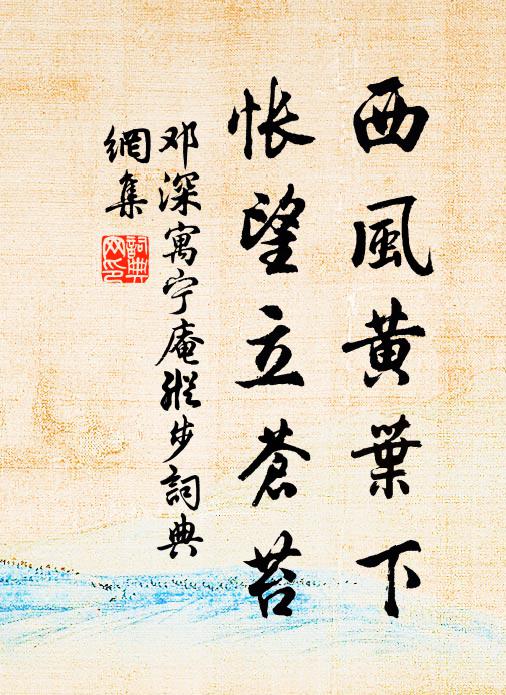 西風黄葉下
悵望立蒼苔
邓深寓宁庵縱步詞典
網集
詞典
网印